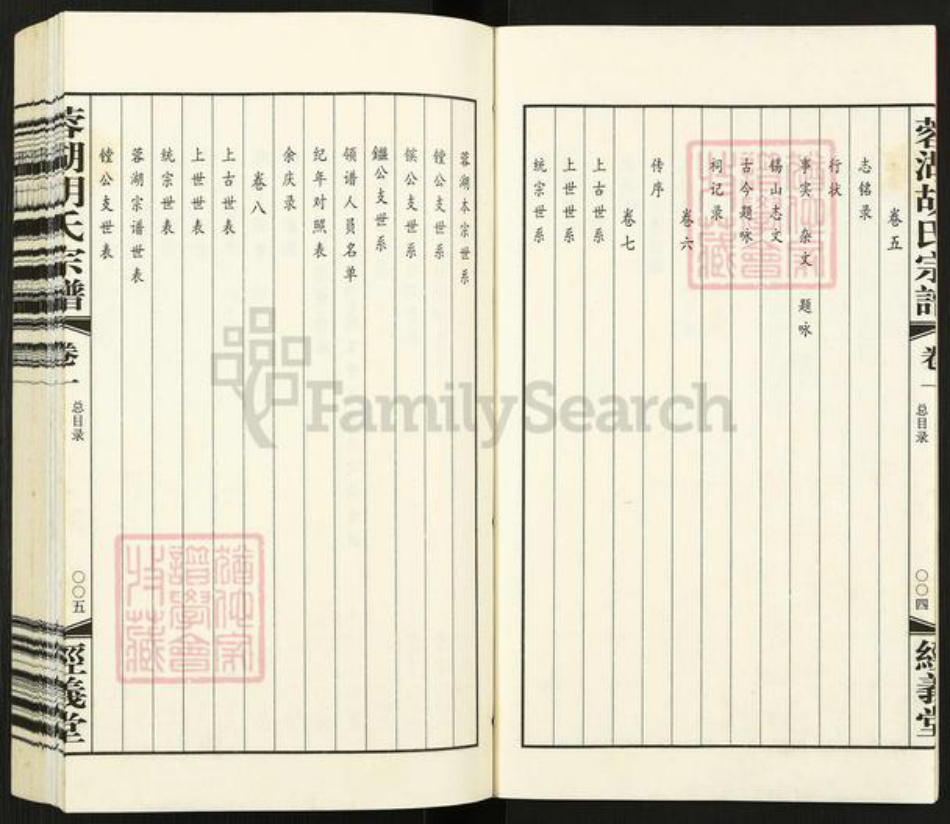 蓉湖胡氏宗譜
卷一
总目录
〇〇四
經義堂
卷五
志铭录
行状
事实 杂文 题咏
锡山志文
古今题咏
祠记录
卷六
传序
卷七
上古世系
上世世系
统宗世系
蓉湖本宗世系
镗公支世系
镔公支世系
鑑公支世系
领谱人员名单
纪年对照表
余庆录
卷八
上古世表
上世世表
统宗世表
蓉湖宗谱世表
镗公支世表
蓉湖胡氏宗譜
卷一
总目录
〇〇五
經義堂
FamilySearch